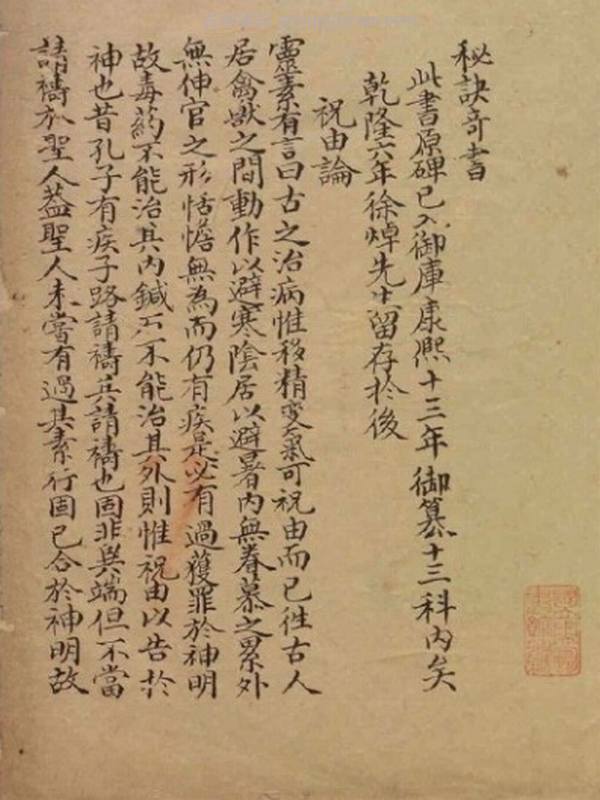 秘訣奇書
此書原碑已入御庫康熙十三年御纂十三科內矣
乾隆六年徐焯先生留存於後
祝由論
靈素有言曰古之治病惟移精變氣可祝由而已往古人
居禽獸之間動作以避寒陰居以避暑內無眷慕之累外
無伸官之形恬憺無為而仍有疾是必有過獲罪於神明
故毒药不能治其內鍼石不能治其外則惟祝由以告於
神也昔孔子有疾子路請禱其請禱也固非異端但不當
請禱於聖人蓋聖人未嘗有過其素行固已合於神明故